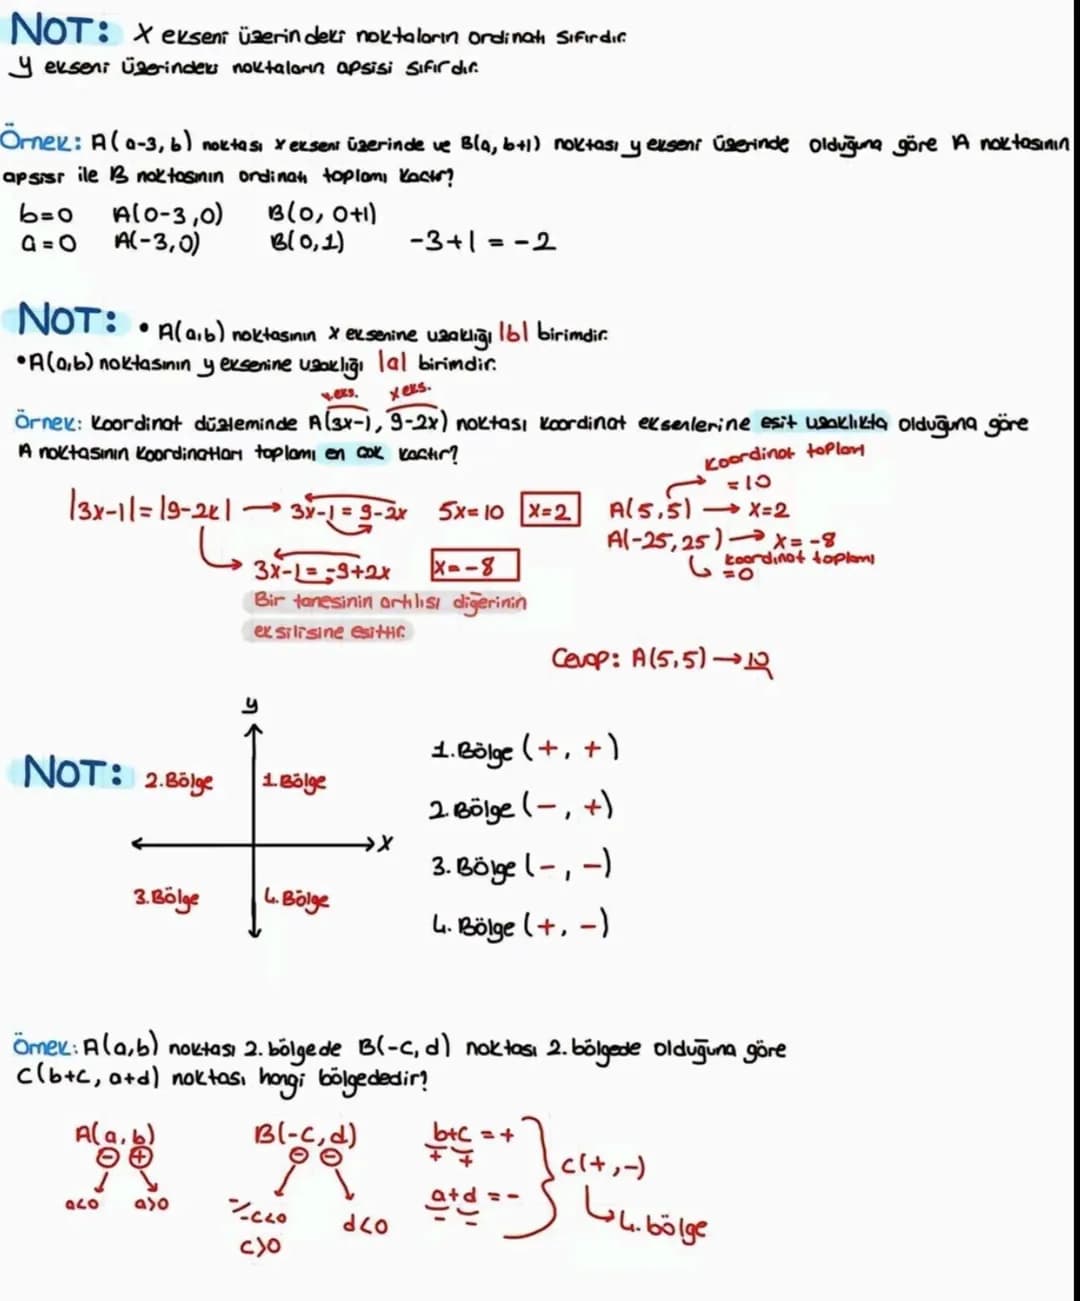 NOT: X ekseni üzerindeki noktaların ordinatı sıfırdır.
y ekseni üzerindeki noktaların apsisi sıfırdır.
Örnek: A(a-3, b) noktası x ekseni üzerinde ve B(a, b+1) noktası y ekseni üzerinde olduğuna göre A noktasının
apsisi ile B noktasının ordinatı toplamı kaçtır?
b=0 A(0-3,0) B(0, 0+1)
a=0 A(-3,0) B(0,1) -3+1 = -2
NOT: • A(a,b) noktasının x eksenine uzaklığı |b| birimdir.
• A(a,b) noktasının y eksenine uzaklığı |a| birimdir.
y.eks. x eks.
Örnek: Koordinat düzleminde A(3x-1, 9-2x) noktası koordinat eksenlerine eşit uzaklıkta olduğuna göre
A noktasının koordinatları toplamı en çok kaçtır?
koordinat toplamı
=10
|3x-1|=|9-2x| → 3x-1=9-2x 5x=10 x=2 A(5,5) → x=2
A(-25,25) → x=-8
koordinat toplamı
=0
3x-1=-9+2x x=-8
Bir tanesinin artılısı diğerinin
eksilisine eşittir.
Cevap: A(5,5) → 10
y
NOT: 2.Bölge 1.Bölge
x
3.Bölge 4.Bölge
1.Bölge (+, +)
2.Bölge (-, +)
3.Bölge (-, -)
4.Bölge (+, -)
Örnek: A(a,b) noktası 2.bölgede B(-c, d) noktası 2.bölgede olduğuna göre
C(b+c, a+d) noktası hangi bölgededir?
A(a,b) B(-c,d) b+c = +
- + - - + +
a<0 a>0 -/-c<0 d<0
c>0
a+d = -
- -
C(+,-)
4.bölge